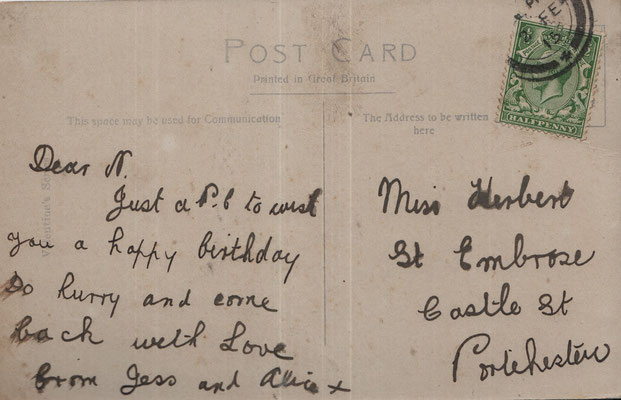 POST CARD
Printed in Great Britain
This space may be used for Communication
The Address to be written
here
HALFPENNY
Dear N.
Just a P.C to wish
you a happy birthday
Do hurry and come
back with Love
from Jess and Alice x
Miss Herbert
St Embrose
Castle St
Portchester